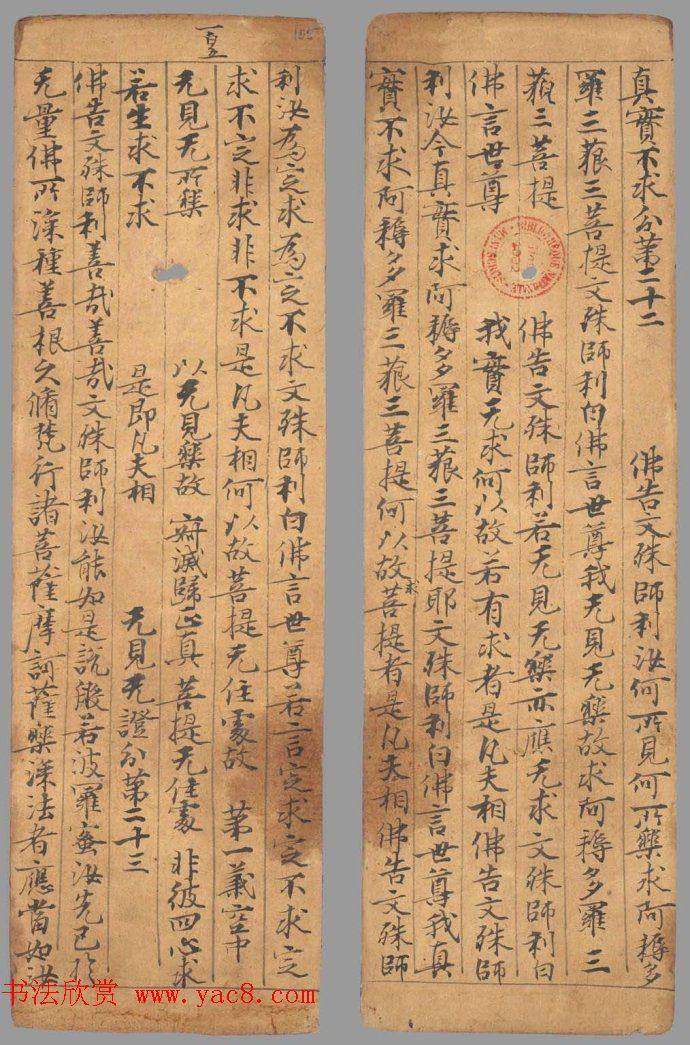 真實不求分第二十二 佛告文殊師利汝何所見何所樂求阿耨多
羅三藐三菩提文殊師利白佛言世尊我无見无樂故求阿耨多羅三
藐三菩提 佛告文殊師利若无見无樂亦應无求文殊師利白
佛言世尊 我實无求何以故若有求者是凡夫相佛告文殊師
利汝今真實求阿耨多羅三藐三菩提耶文殊師利白佛言世尊我真
實不求阿耨多羅三藐三菩提何以故求菩提者是凡夫相佛告文殊師
105
利汝為定求為定不求文殊師利白佛言世尊若言定求定不求定
求不定非求非不求是凡夫相何以故菩提无住處故 第一義空中
无見无所樂 以无見樂故 寂滅歸正真 菩提无住處 非彼四心求
若生求不求 是即凡夫相 无見无證分第二十三
佛告文殊師利善哉善哉文殊師利汝能如是說般若波羅蜜汝先已於
无量佛所深種善根久脩梵行諸菩薩摩訶薩樂深法者應當如汝
书法欣赏 www.yac8.com